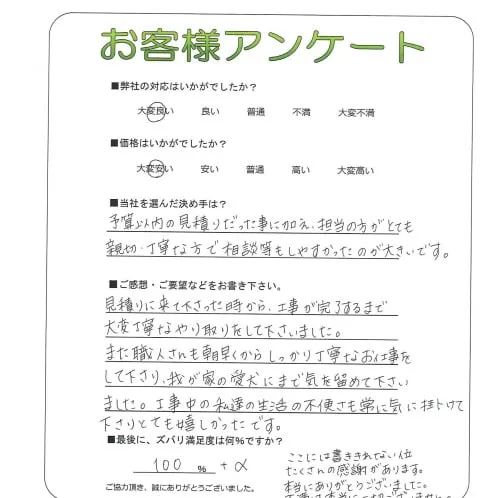 お客様アンケート
■弊社の対応はいかがでしたか？
大変良い 良い 普通 不満 大変不満
■価格はいかがでしたか？
大変安い 安い 普通 高い 大変高い
■当社を選んだ決め手は？
予算以内の見積りだった事に加え、担当の方がとても
親切・丁寧な方で相談等もしやすかったのが大きいです。
■ご感想・ご要望などをお書き下さい。
見積りに来て下さった時から、工事が完了するまで
大変丁寧なやり取りをして下さいました。
また職人さんも朝早くからしっかり丁寧なお仕事を
して下さり、我が家の愛犬にまで気を留めて下さい
ました。工事中の私達の生活の不便さも常に気に掛けて
下さりとても嬉しかったです。
■最後に、ズバリ満足度は何％ですか？
100 % +α
ここには書ききれない位
たくさんの感謝があります。
本当にありがとうございました。
ご協力頂き、誠にありがとうございました。